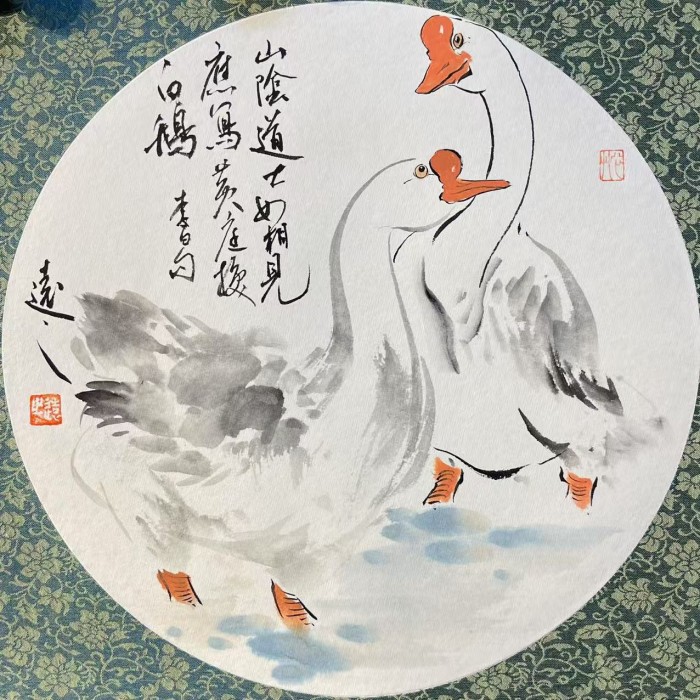 山陰道士如相見
應寫黃庭換
白鵝
李白句
遠之